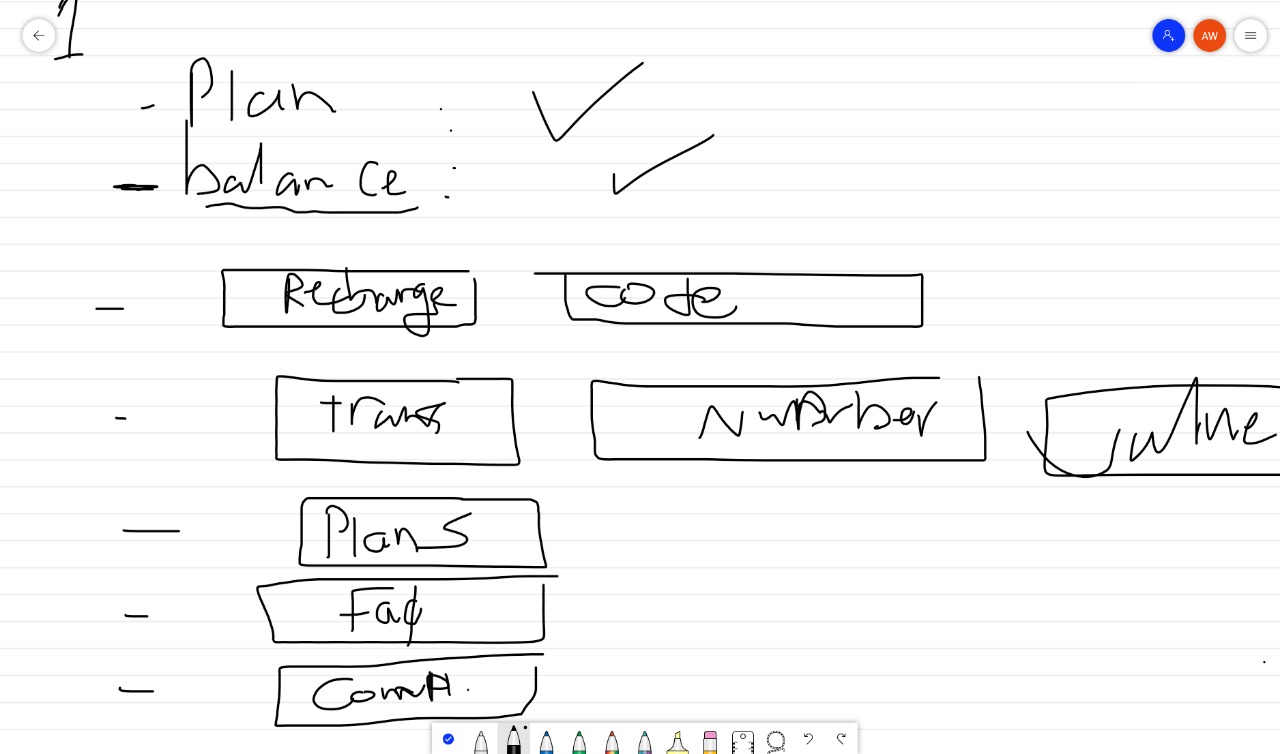 1
- Plan :
- balance :
- Recharge code
- trans Number value
- Plans
- Faq
-
AW